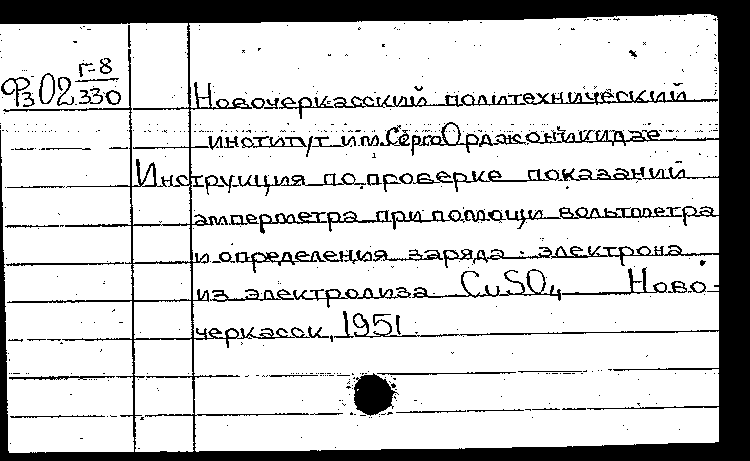 Фз02 Г-8/330
Новочеркасский политехнический
институт им. Серго Орджоникидзе
Инструкция по проверке показаний
амперметра при помощи вольтметра
и определения заряда электрона
из электролиза CuSO4 Ново-
черкасск, 1951